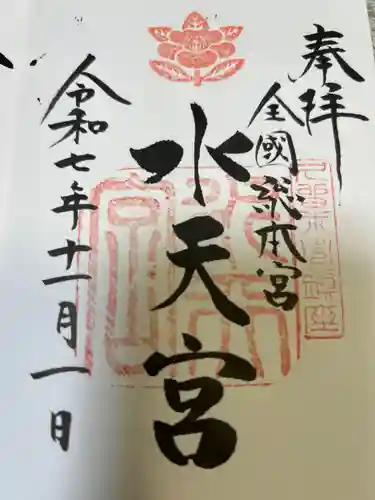 奉拝
全國総本宮
水天宮
令和七年十一月一日